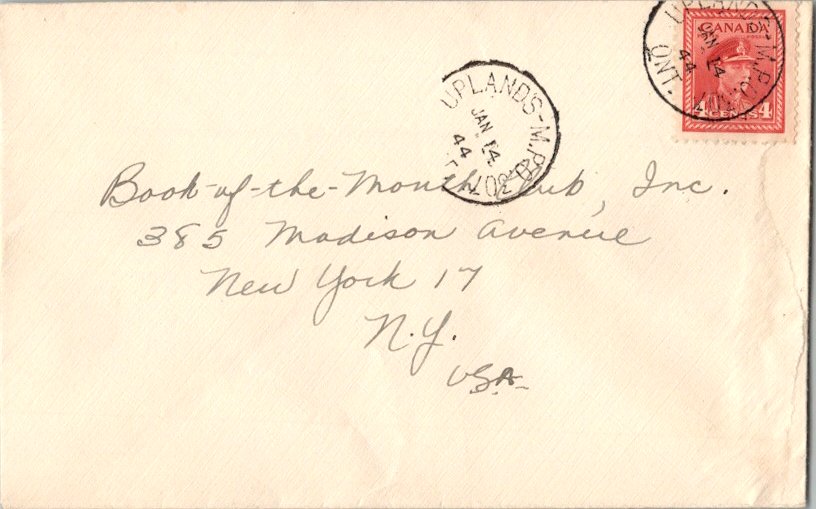 UPLANDS-M.P.O. 307
ONT.
JAN 14
44
CANADA
4 CENTS 4
UPLANDS-M.P.O. 307
JAN 14
44
Book-of-the-Month Club, Inc.
385 Madison Avenue
New York 17
N.Y.
USA